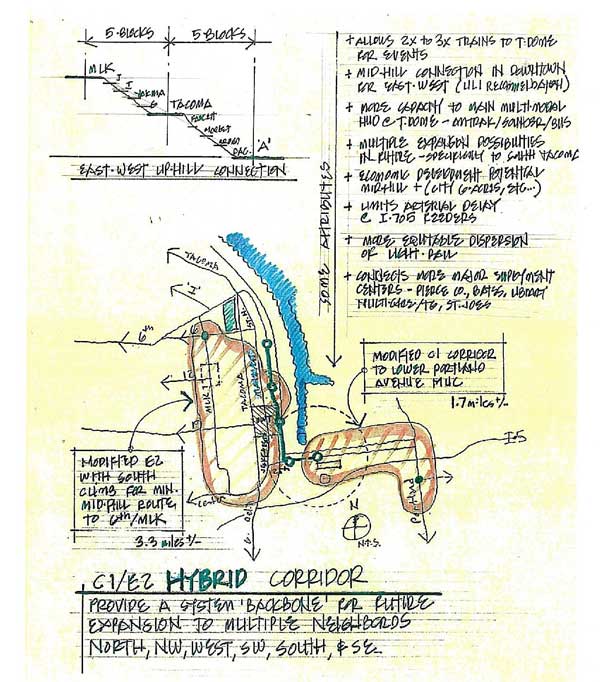 5·BLOCKS 5·BLOCKS
MLK
I
YAKIMA
G
TACOMA
FAWCETT
MARKET
PAC.
'A'
EAST·WEST UP·HILL CONNECTION
SOME ATTRIBUTES
+ ALLOWS 2X TO 3X TRAINS TO T·DOME
FOR EVENTS
+ MID·HILL CONNECTION IN DOWNTOWN
FOR EAST·WEST (ULI RECOMENDATION)
+ MORE CAPACITY TO MAIN MULTI·MODAL
HUB @ T·DOME - AMTRAK/SOUNDER/BUS
+ MULTIPLE EXPANSION POSSIBILITIES
IN FUTURE - SPECIFICALLY TO SOUTH TACOMA
+ ECONOMIC DEVELOPMENT POTENTIAL
MID·HILL + (CITY 6·ACRES, ETC...)
+ LIMITS ARTERIAL DELAY
@ I·705 FEEDERS
+ MORE EQUITABLE DISPERSION
OF LIGHT·RAIL
+ CONNECTS MORE MAJOR EMPLOYMENT
CENTERS - PIERCE CO., BATES, LIBRARY
ST. JOES
TACOMA
'I'
ST.H.
6TH
6
MLK
TACOMA
MODIFIED C1 CORRIDOR
TO LOWER PORTLAND
AVENUE MUC
1.7 miles +/-
I·5
MODIFIED E2
WITH SOUTH
CLIMB FOR MIN.
MID·HILL ROUTE
TO 6TH/MLK
3.3 miles +/-
Center
Portland
N
N.T.S.
C1/E2 HYBRID CORRIDOR
PROVIDE A SYSTEM 'BACKBONE' FOR FUTURE
EXPANSION TO MULTIPLE NEIGHBORDS
NORTH, NW, WEST, SW, SOUTH, & SE.